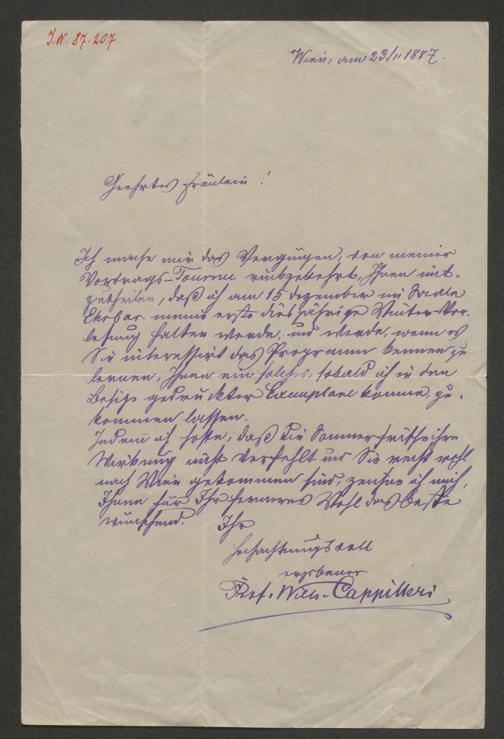 I.N. 87.207
Wien, am 23/11 1887.
Geehrtes Fräulein!
Ich mache mir das Vergnügen, von meiner
Vortrags-Tournee rückgekehrt, Ihnen mit-
zutheilen, daß ich am 15 Dezember im Saale
Ehrbar meine erste diesjährige Winter-Vor-
lesung halten werde, und werde, wenn es
Sie interessirt das Programm kennen zu
lernen, Ihnen ein solches, sobald ich in den
Besitz gedruckter Exemplare komme, zu-
kommen lassen.
Indem ich hoffe, daß die Sommerfrische ihre
Wirkung nicht verfehlt und Sie recht wohl
nach Wien gekommen sind, zeichne ich mich,
Ihnen für Ihr ferneres Wohl das Beste
wünschend.
Ihr
hochachtungsvoll
ergebener
Prof. Wilh. Cappilleri